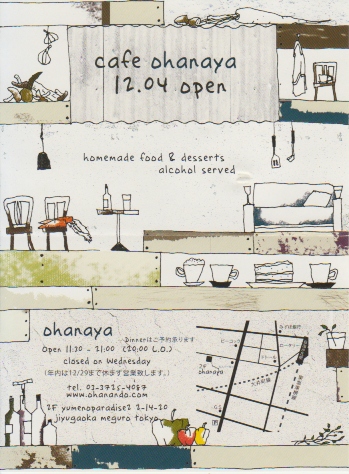 cafe ohanaya
12.04 open
homemade food & desserts
alcohol served
ohanaya
Dinnerはご予約承ります
open 11:30 - 21:00 (20:00 L.O.)
closed on Wednesday
(年内は12/29まで休まず営業致します。)
tel. 03-3725-4087
www.ohanando.com
2F yumenoparadise2 2-14-20
jiyugaoka meguro tokyo
みずほ銀行
ピーコック
2F
ohanaya
大井町線